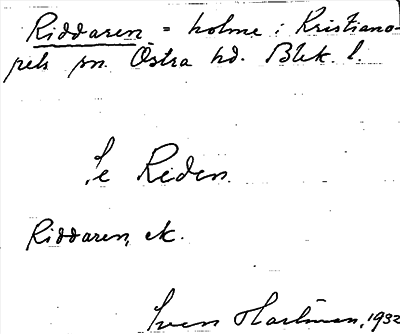 Riddaren = holme i Kristiano-
pels sn. Östra hd. Blek. l.
Se Reden.
Riddaren, ek.
Sven Hartman, 1932